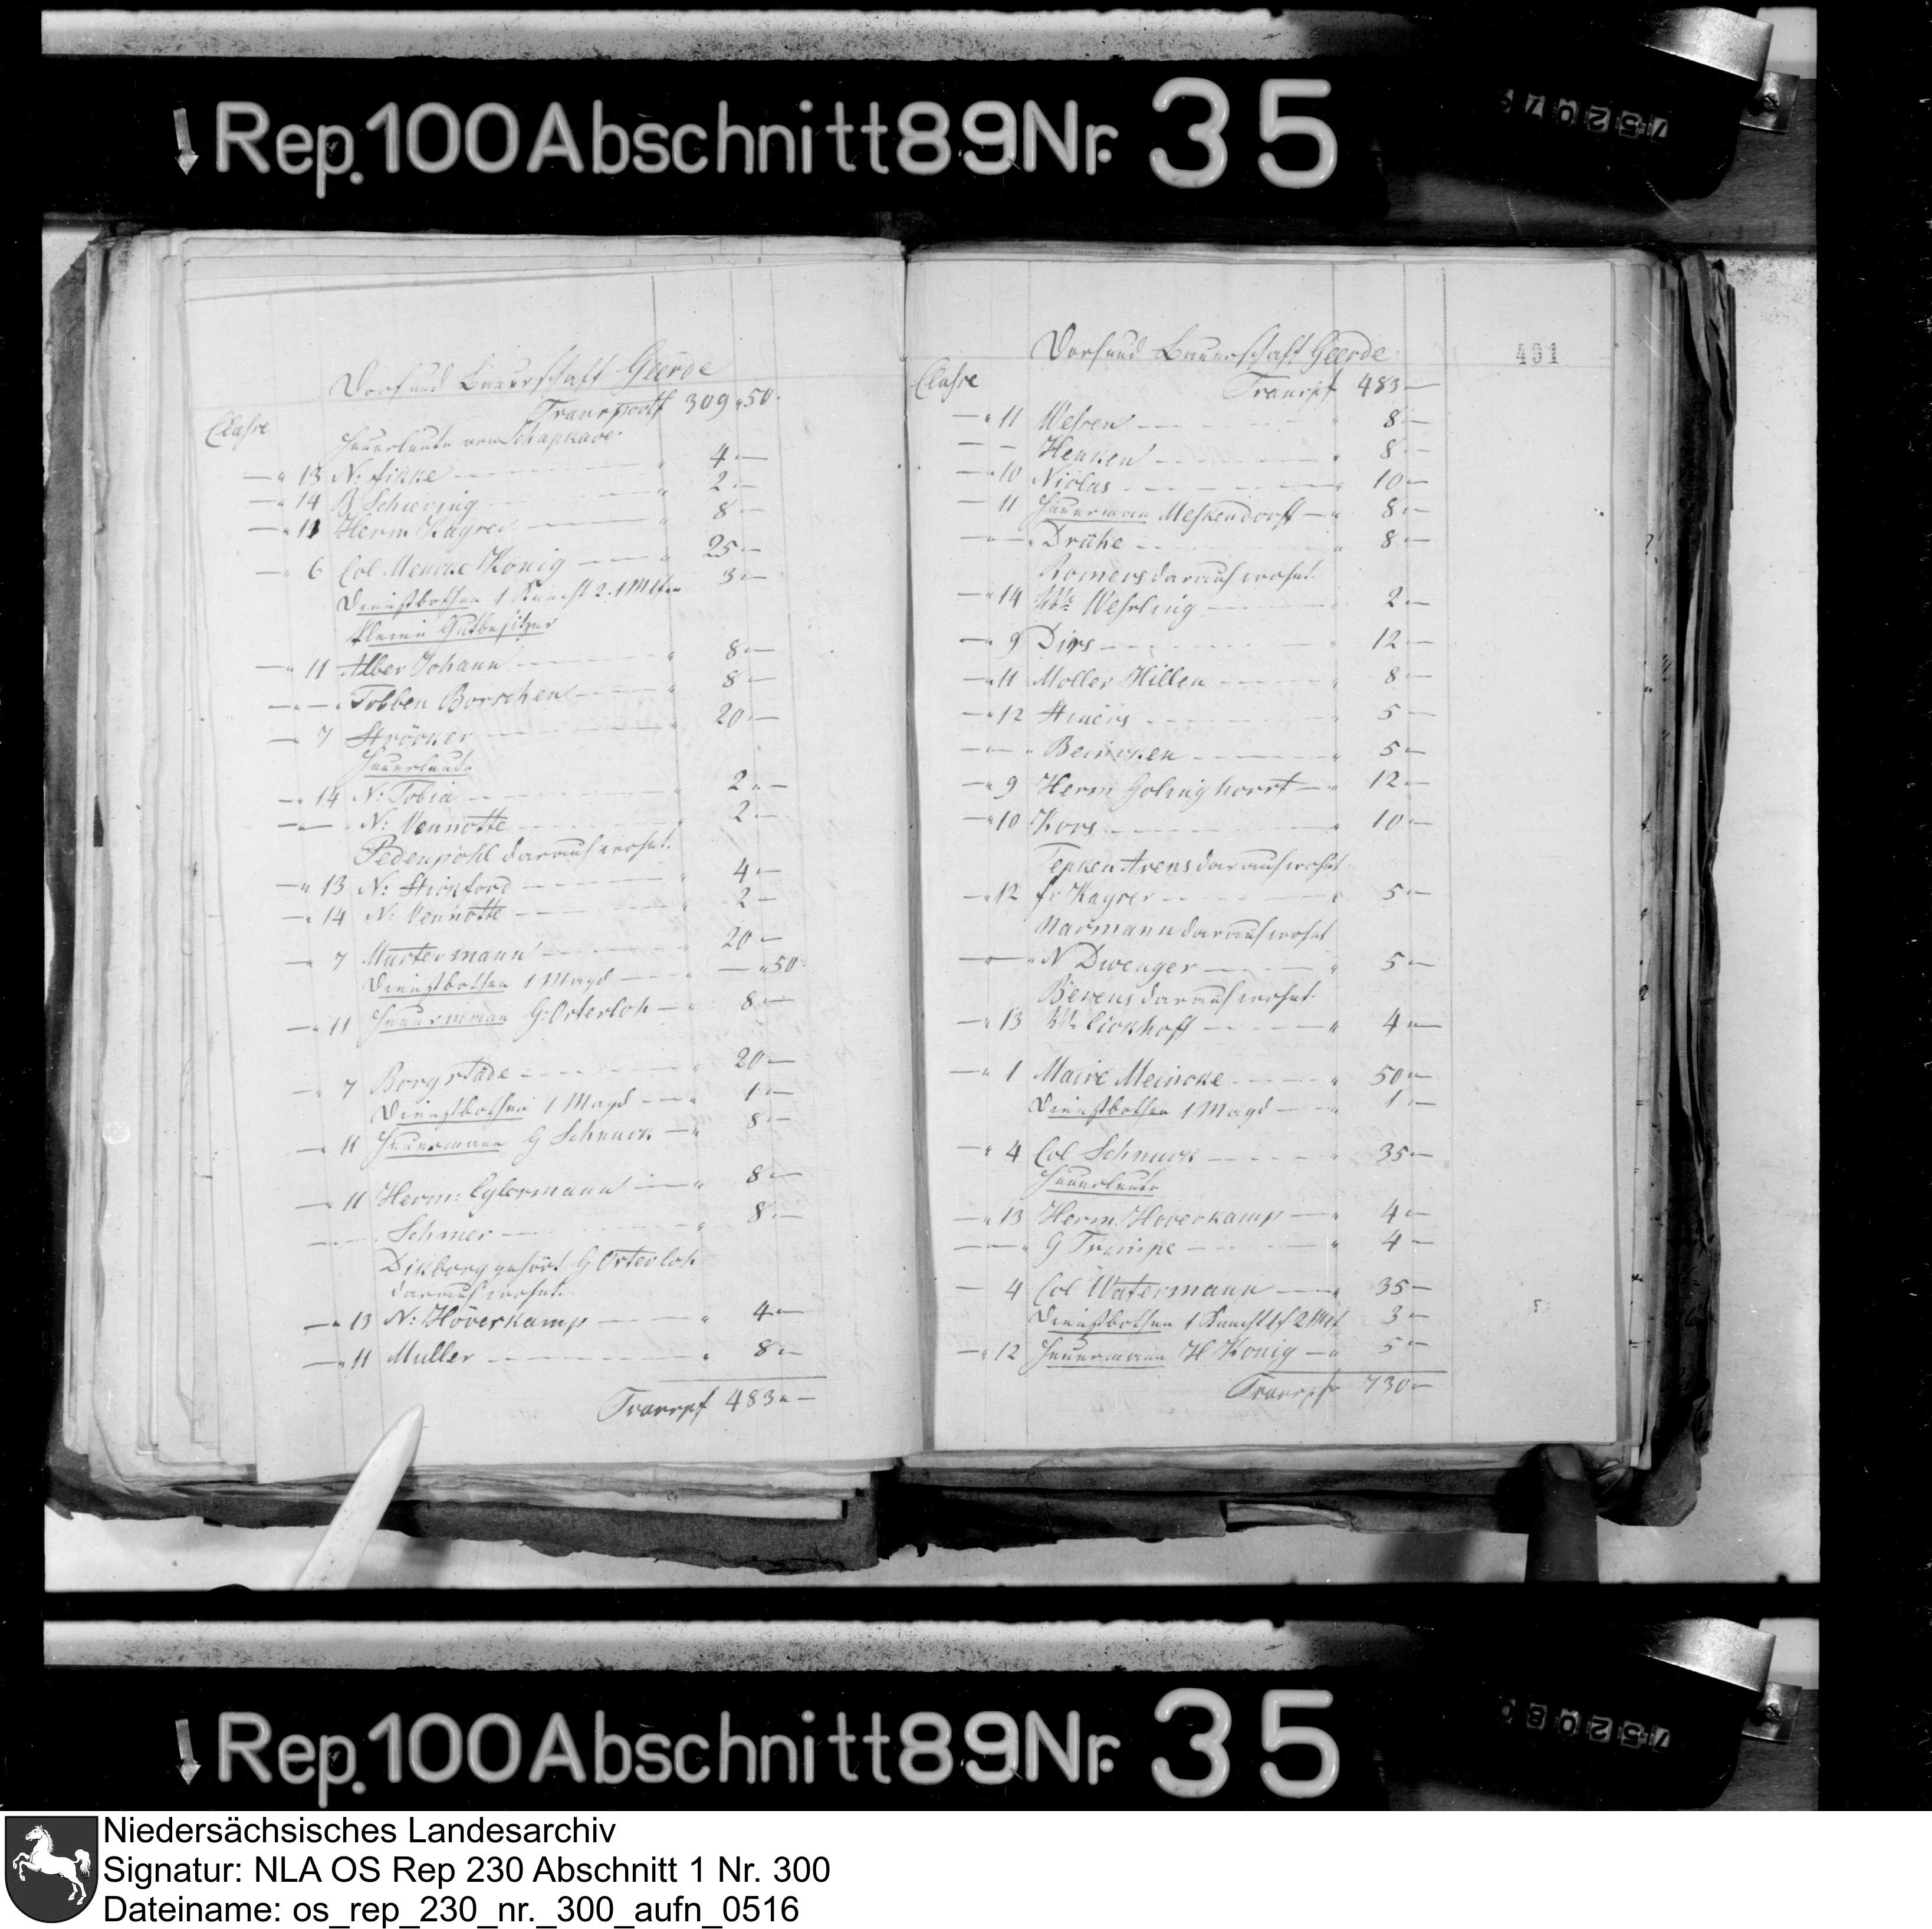 Rep. 100 Abschnitt 89 Nr. 35
Dorf und Bauerschaft Geerde
Transport 309 " 50
Classe
Heuerleute von Schapkave
— " 13 N: fikke — " 4 " —
— " 14 B Schiering — " 2 " —
— " 11 Herm Kayser — " 8 " —
— " 6 Col Mencke König — " 25 " —
Dienstbothen 1 Knecht 2. 1 " 3 " —
kleine Gutbesitzer
— " 11 Alber Johann — " 8 " —
— " — " Tobben Borschen — " 8 " —
— " 7 Ströcker — " 20 " —
Heuerleute
— " 14 N: Tobia — " 2 " —
— " — " N: Vennotte — " 2 " —
Pedenpohl darauf wohnt.
— " 13 N: Stickford — " 4 " —
— " 14 N: Vennotte — " 2 " —
— " 7 Mustermann — " 20 " —
Dienstbothen 1 Magd — " — " 50
— " 11 Heuermann G: Osterloh — " 8 " —
— " 7 Borgstäde — " 20 " —
Dienstbothen 1 Magd — " 1 " —
— " 11 Heuermann G Schnuck — " 8 " —
— " 11 Herm: Eylermann — " 8 " —
— " — Schmer — " 8 " —
Dikborg gehört G Osterloh
darauf wohnt.
— " 13 N: Höverkamp — " 4 " —
— " 11 Muller — " 8 " —
Transpf 483 " —
Dorf und Bauerschaft Geerde
491
Classe
Transpf 483 —
— " 11 Wesren — " 8 " —
— — Henken — " 8 " —
— " 10 Niolas — " 10 " —
— 11 Heuermann Meskendorff — " 8 " —
— " — " Drähe — " 8 " —
Romers darauf wohnt.
— " 14 Wehrling — " 2 " —
— " 9 Dirs — " 12 " —
— " 11 Moller Hillen — " 8 " —
— " 12 — " 5 " —
— " — " Beincken — " 5 " —
— " 9 Herm Golinghorst — " 12 " —
— " 10 Kors — " 10 " —
Tepken Arens darauf wohnt
— " 12 fr Kayser — " 5 " —
Narmann darauf wohnt
— " — " N Dwenger — " 5 " —
Berens darauf wohnt.
— " 13 Eickhoff — " 4 " —
— " 1 Maire Meincke — " 50 " —
Dienstbothen 1 Magd — " 1 " —
— " 4 Col Schnuck — " 35 " —
Heuerleute
— " 13 Herm. Hoverkamp — " 4 " —
— " — " G Trimpe — " 4 " —
— 4 Col Watermann — " 35 " —
Dienstbothen 1 Knecht 3 " —
— " 12 Heuermann H König — " 5 " —
Transpf 730 " —
Rep. 100 Abschnitt 89 Nr. 35
Niedersächsisches Landesarchiv
Signatur: NLA OS Rep 230 Abschnitt 1 Nr. 300
Dateiname: os_rep_230_nr._300_aufn_0516